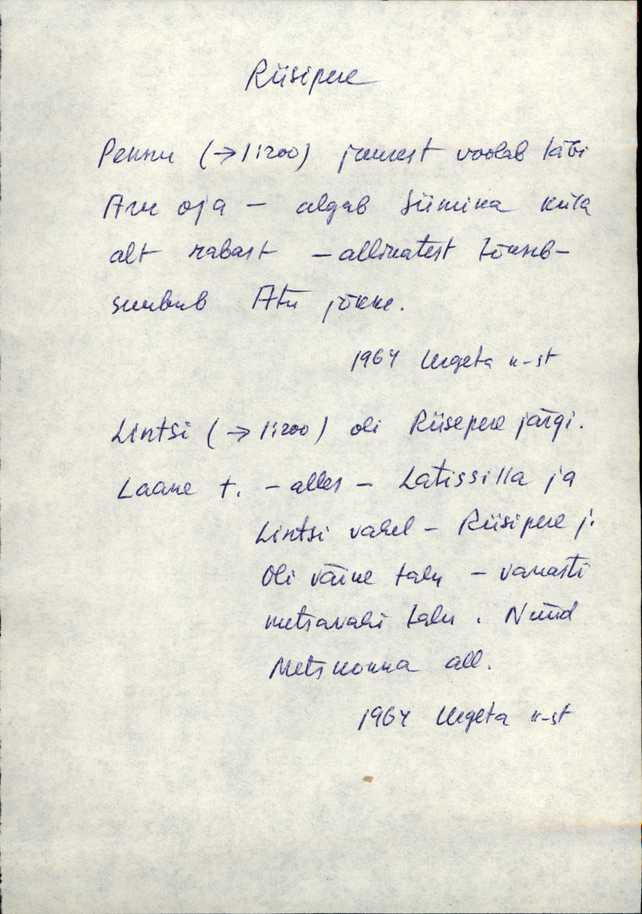 Riisipere
Pennu (→1:200) juurest voolab läbi
Aru oja – algab Siimika küla
alt rabast – allikatest tõuseb –
suubub Atu jõkke.
1964 Urgeta n-st
Lintsi (→ 1:200) oli Riisepere järgi.
Laane t. – alles – Latissilla ja
Lintsi vahel – Riisipere j.
Oli väike talu – vanasti
metsavahi talu. Nüüd
Metskonna all.
1964 Urgeta n-st